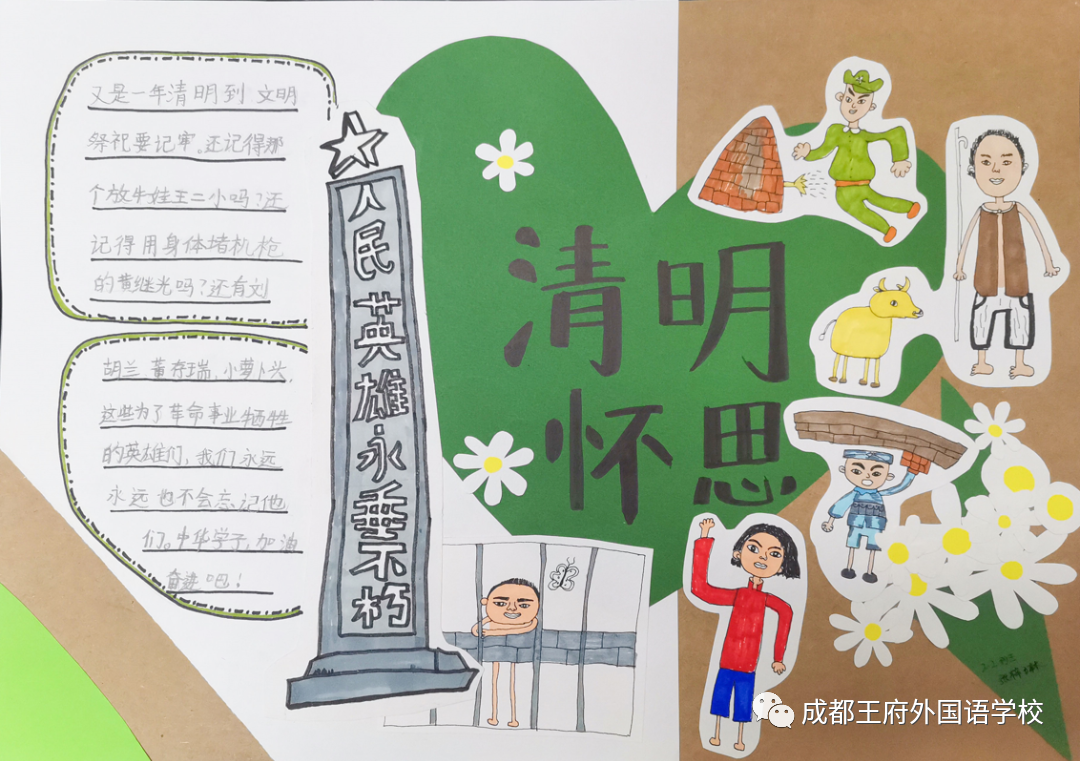 又是一年清明到 文明
祭祀要记牢。还记得那
个放牛娃王二小吗？还
记得用身体堵机枪
的黄继光吗？还有刘
胡兰、董存瑞、小萝卜头，
这些为了革命事业牺牲
的英雄们，我们永远
永远也不会忘记他
们。中华学子，加油
奋进吧！
人民英雄永垂不朽
清明
怀思
成都王府外国语学校